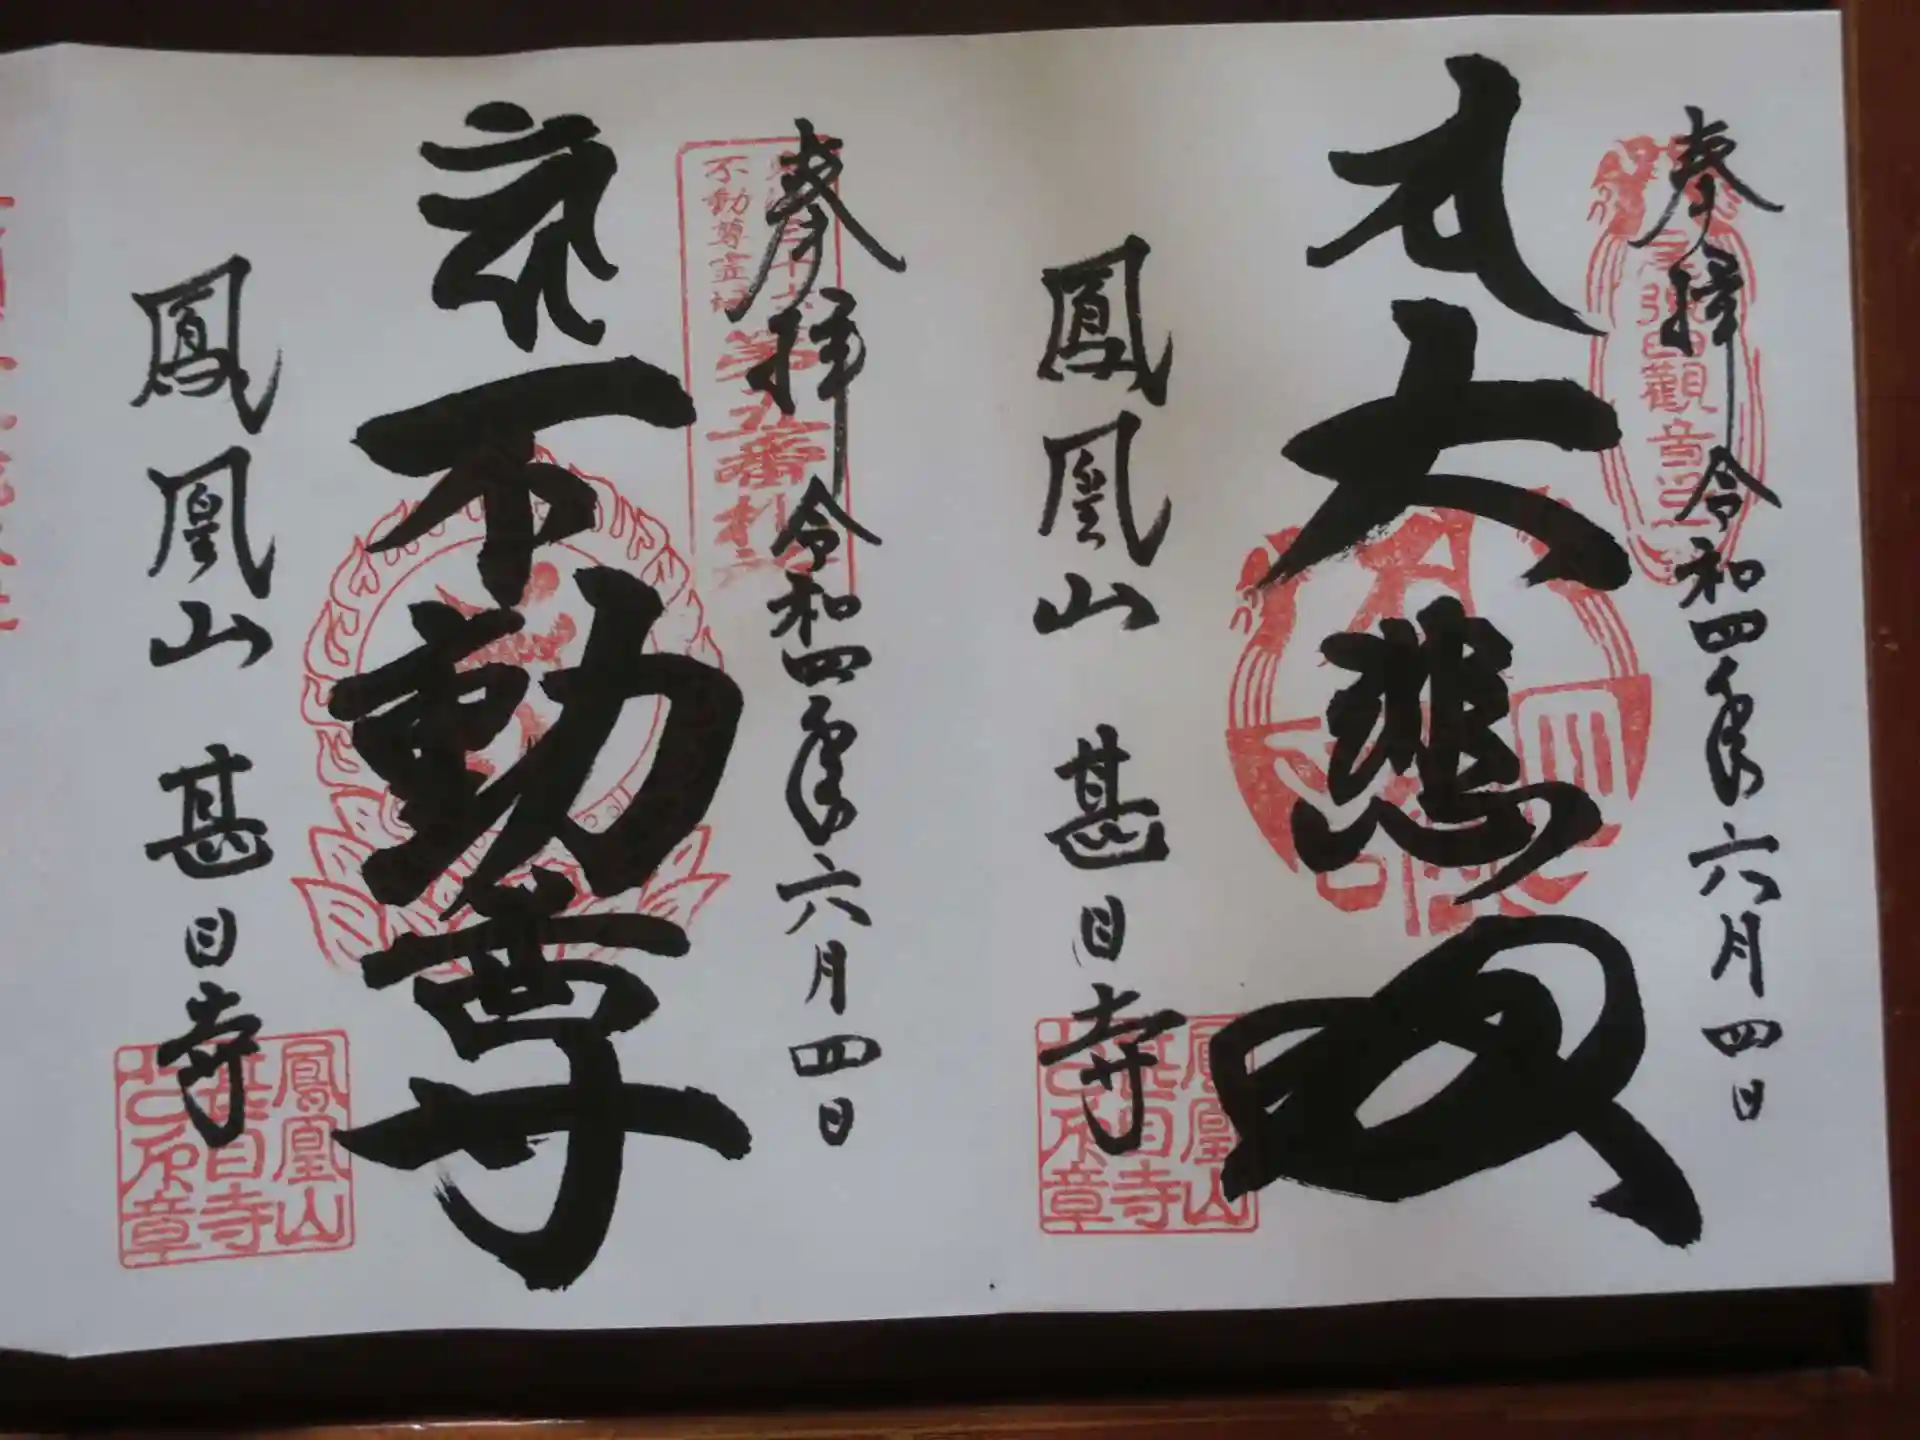 奉拝 令和四年六月四日
大悲閣
鳳凰山 甚目寺
尾張四観音
鳳凰山
甚目寺
之印章
奉拝 令和四年六月四日
不動尊
鳳凰山 甚目寺
不動尊霊場
第九番札所
鳳凰山
甚目寺
之印章